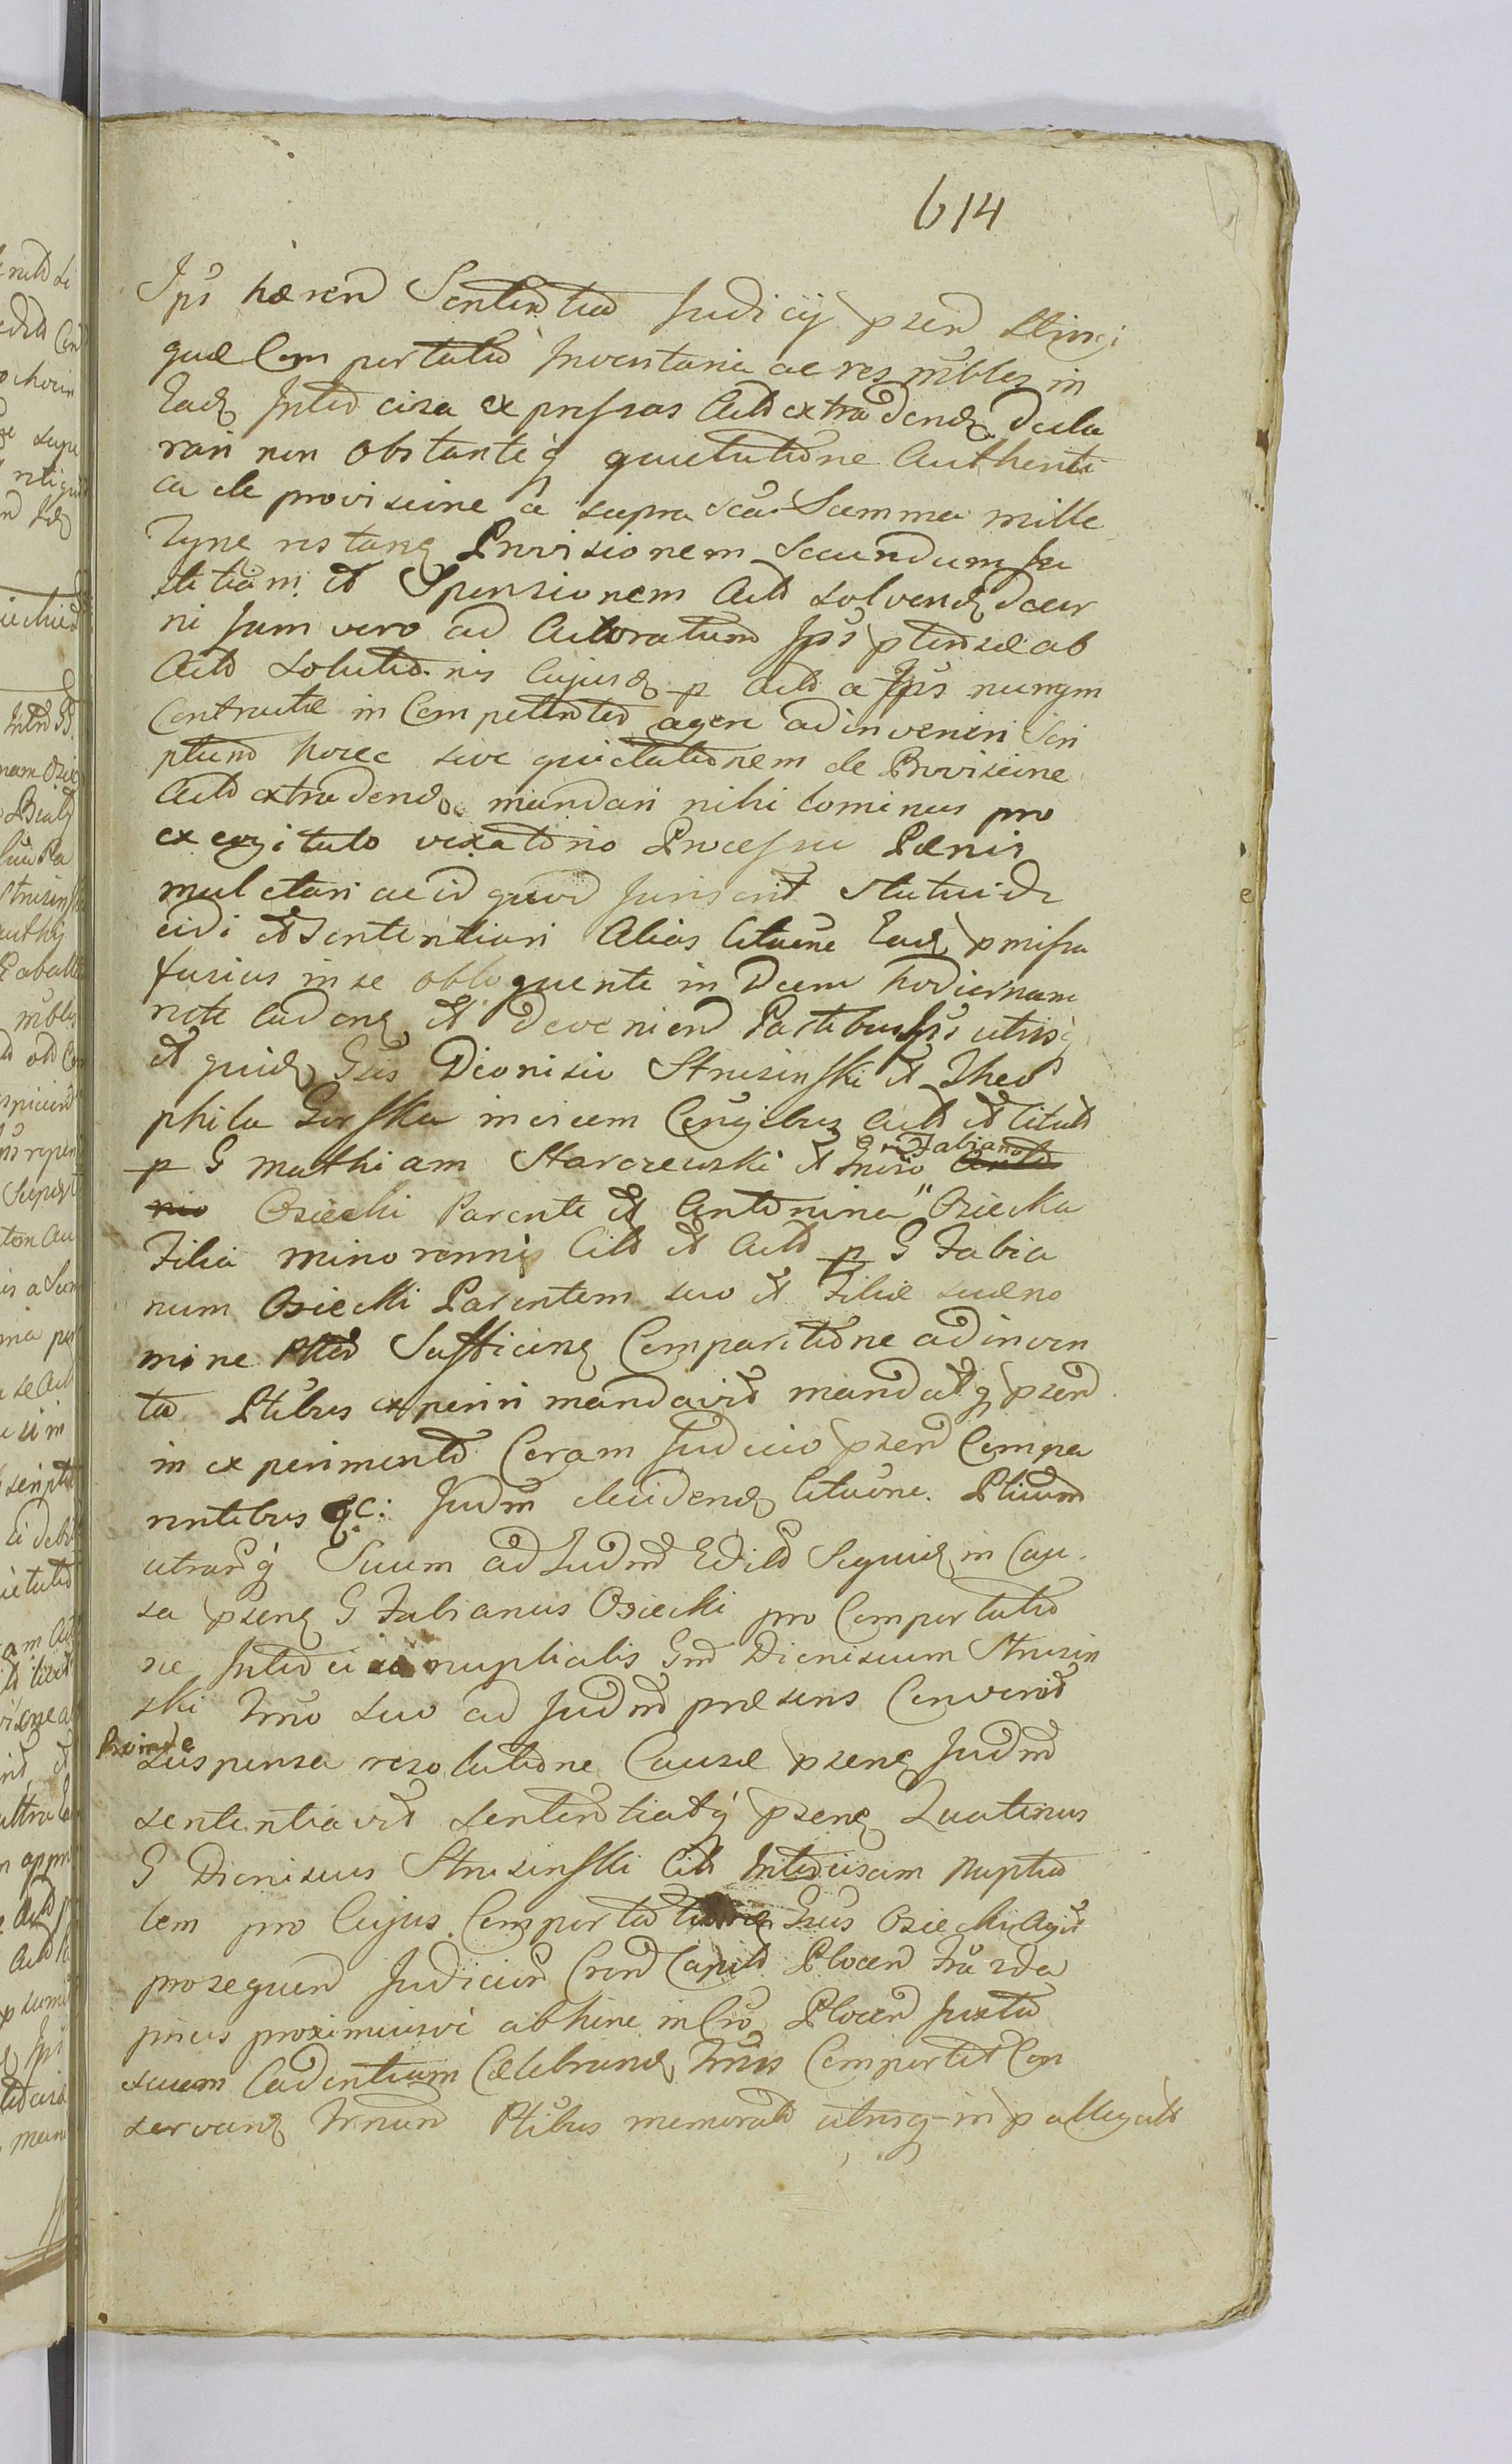 614
Ips hæren Sententia Judicij pzen Stingi
quæ Comportatio Inventaria ac res mbles in
Ead Intercisa expressas Acto extradend decla
rari non obstanteq quietatione Authenti
ca de provisione a supra sca Summa mille
Tynf restanq Provisionem Secundum Ju
stitiam et Spensionem Acto solvend decer
ni Jam vero ad Actoratum Ips ptensæ ab
Acto solutionis Cujusd p Acto a Ips nunqm
Contractæ in Competenter agere adinveniri Scri
ptum hocce sive quietationem de Provisione
Acto extradend mandari nihilominus pro
excogitato vexatorio Processu Pœnis
mulctari ac id quod Juris erit Statui de
cidi et Sententiari Alias Citatione Ead pmissa
fusius in se obloquente in Diem hodiernam
recte Cadenq et deveniend Partibus Ips utrisq
et quid Gsis Dionisio Strusinski et Theo
phila Gorska invicem Conjgibus Acto et Citato
p G Mathiam Starczewski et Gnroso Fabiano Anto
nio Osiecki Parente et Antonina Osiecka
Filia minorennis Cito et Acto p G Fabia
num Osiecki Parentem suo et Filiæ suæ no
mine Ptes Sufficienq Comparitione adinven
ta Ptibus experiri mandavit mandatq pzen
in experimento Coram Judicio pzen Compa
rentibus &c: Judm eluidend Citatione. Ptium
utrarq Suum ad Judm Edito Sequid in Cau
sa pzenq G Fabianus Osiecki pro Comportatio
ne Intercisæ nuptialis Gm Dionisium Strusin
ski Trno suo ad Judm præsens Convenit
Proinde Suspensa resolutione Causæ pzenq Judm
sententiavit sententiatq pzenq Quatenus
G Dionisius Strusinski Cito Intercisam Nuptia
lem pro Cujus Comportatione Gsus Osiecki Agit
prosequen Judicior Cren Capito Plocen
pncis proximiusve abhinc in Cro Plocen Juxta
suum Cadentiam Celebrand Trnis Comportet Con
servanq Trnum Ptibus memorato utrisq in p allegato